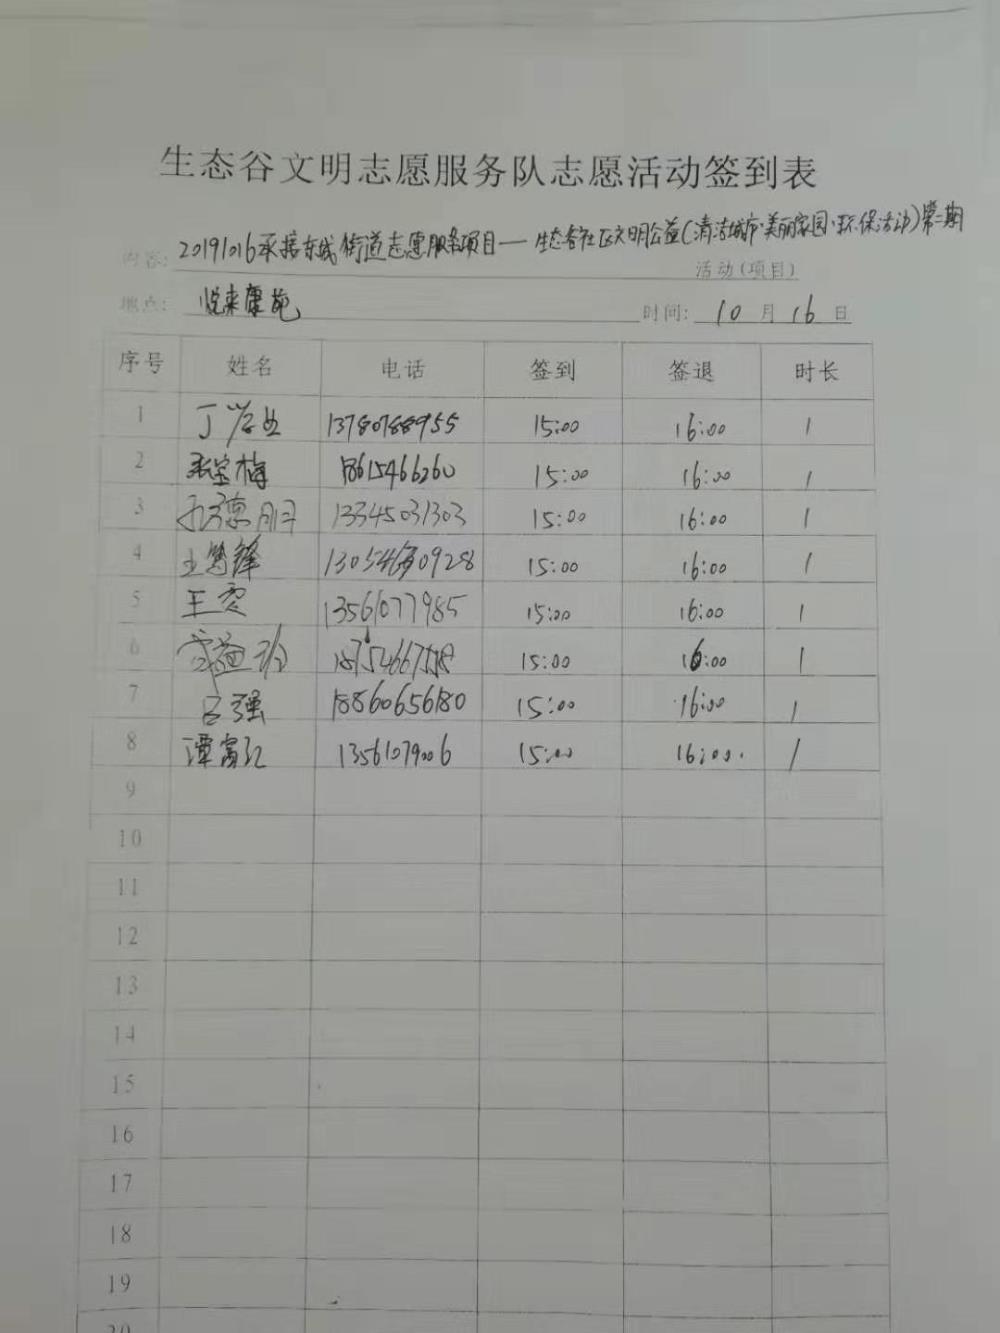 生态谷文明志愿服务队志愿活动签到表
内容: 20191016承接东城街道志愿服务项目—生态谷社区文明公益(清洁城市·美丽家园·环保活动)第二期
活动(项目)
地点: 悦来康苑 时间: 10 月 16 日
序号 姓名 电话 签到 签退 时长
1 丁学 13780788955 15:00 16:00 1
2 张宝梅 18615466260 15:00 16:00 1
3 13345031303 15:00 16:00 1
4 15:00 16:00 1
5 王雯 13561077985 15:00 16:00 1
6 15:00 16:00 1
7 吕强 18860656180 15:00 16:00 1
8 谭富江 13561079006 15:00 16:00. 1
9
10
11
12
13
14
15
16
17
18
19
20